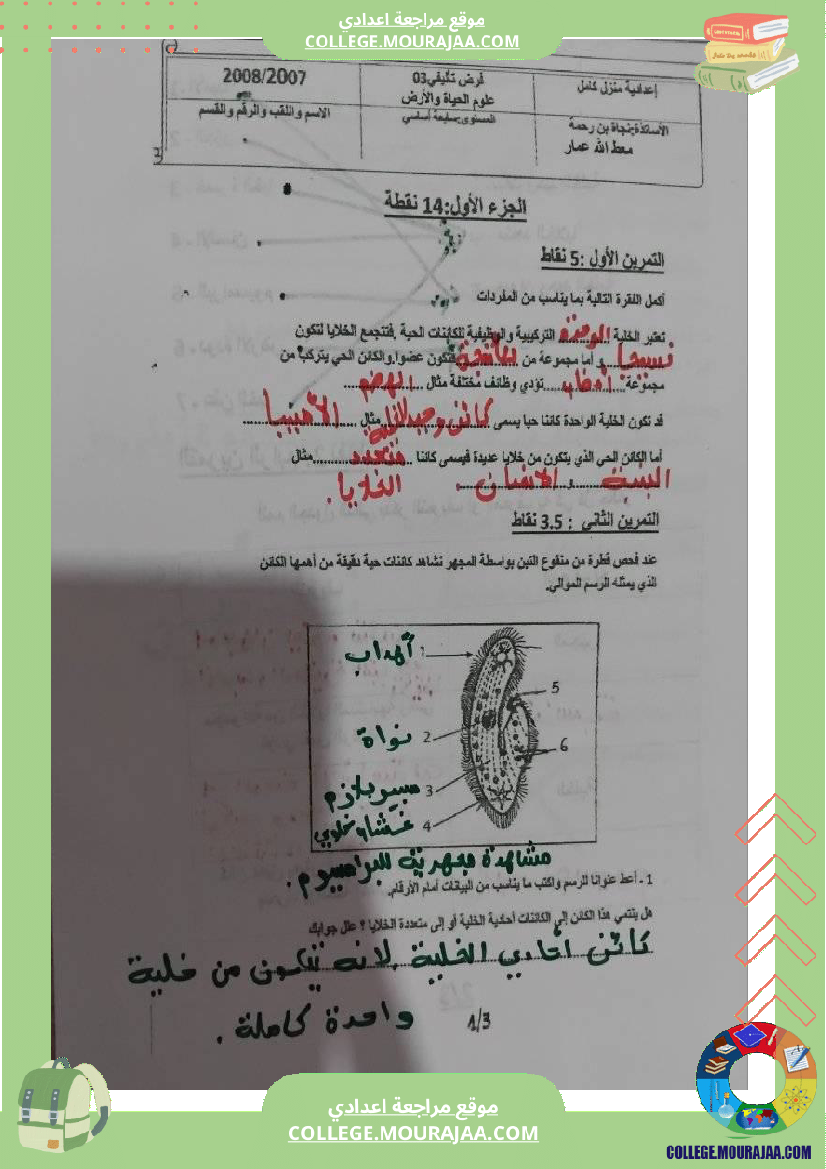 موقع مراجعة اعدادي
COLLEGE.MOURAJAA.COM
إعدادية منزل كامل
فرض تأليفي03
علوم الحياة والأرض
2008/2007
الأستاذة:نجاة بن رحمة
معط الله عمار
المستوى:سابعة أساسي
الاسم واللقب والرقم والقسم
الجزء الأول:14 نقطة
التمرين الأول :5 نقاط
أكمل الفقرة التالية بما يناسب من المفردات
تعتبر الخلية الوحدة التركيبية والوظيفية للكائنات الحية .فتتجمع الخلايا لتكون
نسيجا و أما مجموعة من الأنسجة فتكون عضوا.والكائن الحي يتركب من
مجموعة أعضاء تؤدي وظائف مختلفة مثل الهضم
قد تكون الخلية الواحدة كائنا حيا يسمى كائن وحيد الخلية مثال الأميبيا
أما الكائن الحي الذي يتكون من خلايا عديدة فيسمى كائنا متعدد مثال
البصلة و الانسان الخلايا.
التمرين الثاني : 3.5 نقاط
عند فحص قطرة من منقوع التبن بواسطة المجهر نشاهد كائنات حية دقيقة من أهمها الكائن
الذي يمثله الرسم الموالي.
أهداب 1
5
نواة 2
6
سيتوبلازم 3
غشاء خلوي 4
مشاهدة مجهرية للبراميسيوم.
1 - أعط عنوانا للرسم واكتب ما يناسب من البيانات أمام الأرقام.
هل ينتمي هذا الكائن إلى الكائنات أحادية الخلية أو إلى متعددة الخلايا ؟ علل جوابك
كائن أحادي الخلية .لانه يتكون من خلية
واحدة كاملة .
1/3
موقع مراجعة اعدادي
COLLEGE.MOURAJAA.COM
COLLEGE.MOURAJAA.COM